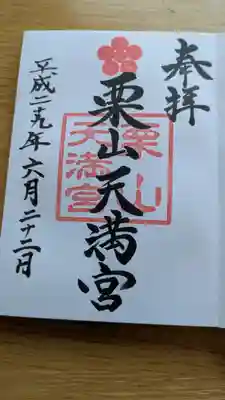 奉拝
栗山天満宮
栗山
天満宮
平成二十九年六月二十二日